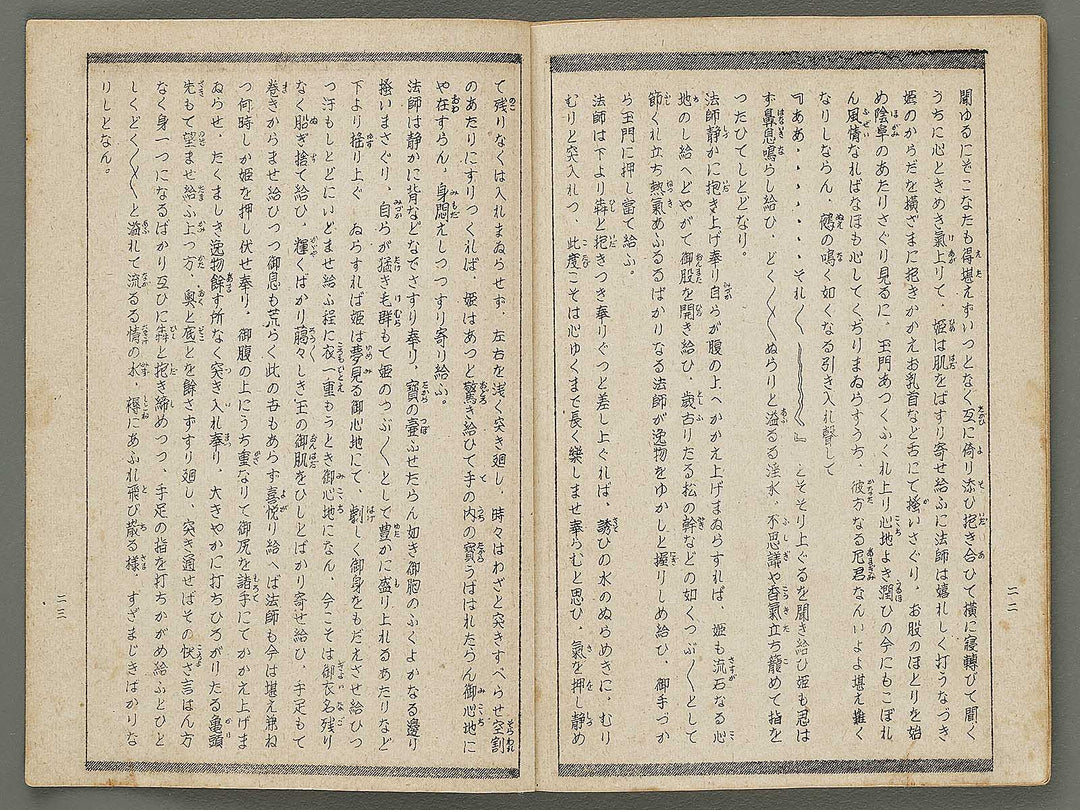 聞ゆるにそこなたも得堪えずいつとなく互に倚り添ひ抱き合ひて横に寝轉びて聞く
うちに心ときめき氣上りて、姫は肌をばすり寄せ給ふに法師は嬉れしく打うなづき
姫のからだを横ざまに抱きかかえお乳首など舌にて掻いさぐり、お股のほとりを始
め陰阜のあたりさぐり見るに、玉門あつくふくれ上り心地よき潤ひの今にもこぼれ
ん風情なればなほも心してくぢりまゐらすうち、彼方なる尼君なんいよよ堪え難く
なりしならん、鵺の鳴く如くなる引き入れ聲して
『ああ、、、、、、それ〱 〱』とそそり上ぐるを聞き給ひ姫も忍は
ず鼻息鳴らし給ひ、どく〱〱ぬらりと溢るる淫水、不思議や香氣立ち籠めて指を
つたひてしとどなり。
法師静かに抱き上げ奉り自らが腹の上へかかえ上げまゐらすれば、姫も流石なる心
地のし給へどやがて御股を開き給ひ、歳古りたる松の幹などの如くつぶ〱として
節くれ立ち熱氣あふるるばかりなる法師が逸物をゆかしと握りしめ給ひ、御手づか
ら玉門に押し當て給ふ。
法師は下より犇と抱きつき奉りぐっと差し上ぐれば、誘ひの水のぬらめきに、むり
むりと突入れつ、此度こそは心ゆくまで長く樂しませ奉らむと思ひ、氣を押し静め
二二
て残りなくは入れまゐらせず、左右を浅く突き廻し、時々はわざと突きすべらせ空割
のあたりにすりつくれば、姫はあっと驚き給ひて手の内の寶うばはれたらん御心地に
や在すらん、身悶えしつつすり寄り給ふ。
法師は静かに背などなでさすり奉り、寶の壷ふせたらん如き御胞のふくよかなる邊り
掻いまさぐり、自らが猛き毛群もて姫のつぶ〱として豊かに盛り上れるあたりなど
下より揺り上ぐゐらすれば姫は夢見る御心地にて、劇しく御身をもだえさせ給ひつ
つ汗もしとどにいどませ給ふ程に衣一重もうとき御心地になん、今こそは御衣名残り
なく脱ぎ捨て給ひ、輝くばかり﨟々しき玉の御肌をひしとばかり寄せ給ひ、手足もて
巻きからませ給ひつつ御息も荒らく此の世もあらず喜悦り給へば法師も今は堪え兼ね
つ何時しか姫を押し伏せ奉り、御腹の上にうち重なりて御尻を諸手にてかかえ上げま
ゐらせ、たくましき逸物餘す所なく突き入れ奉り、大きやかに打ちひろがりたる亀頭
先もて望ませ給ふ上つ方、奥と底とを餘さずすり廻し、突き通せばその快さ言はん方
なく身一つになるばかり互ひに犇と抱き締めつつ、手足の指を打ちかがめ給ふとひと
しくどく〱〱と溢れて流るる情の水、褥にあふれ飛び散る様、すざまじきばかりな
りしとなん。
二三